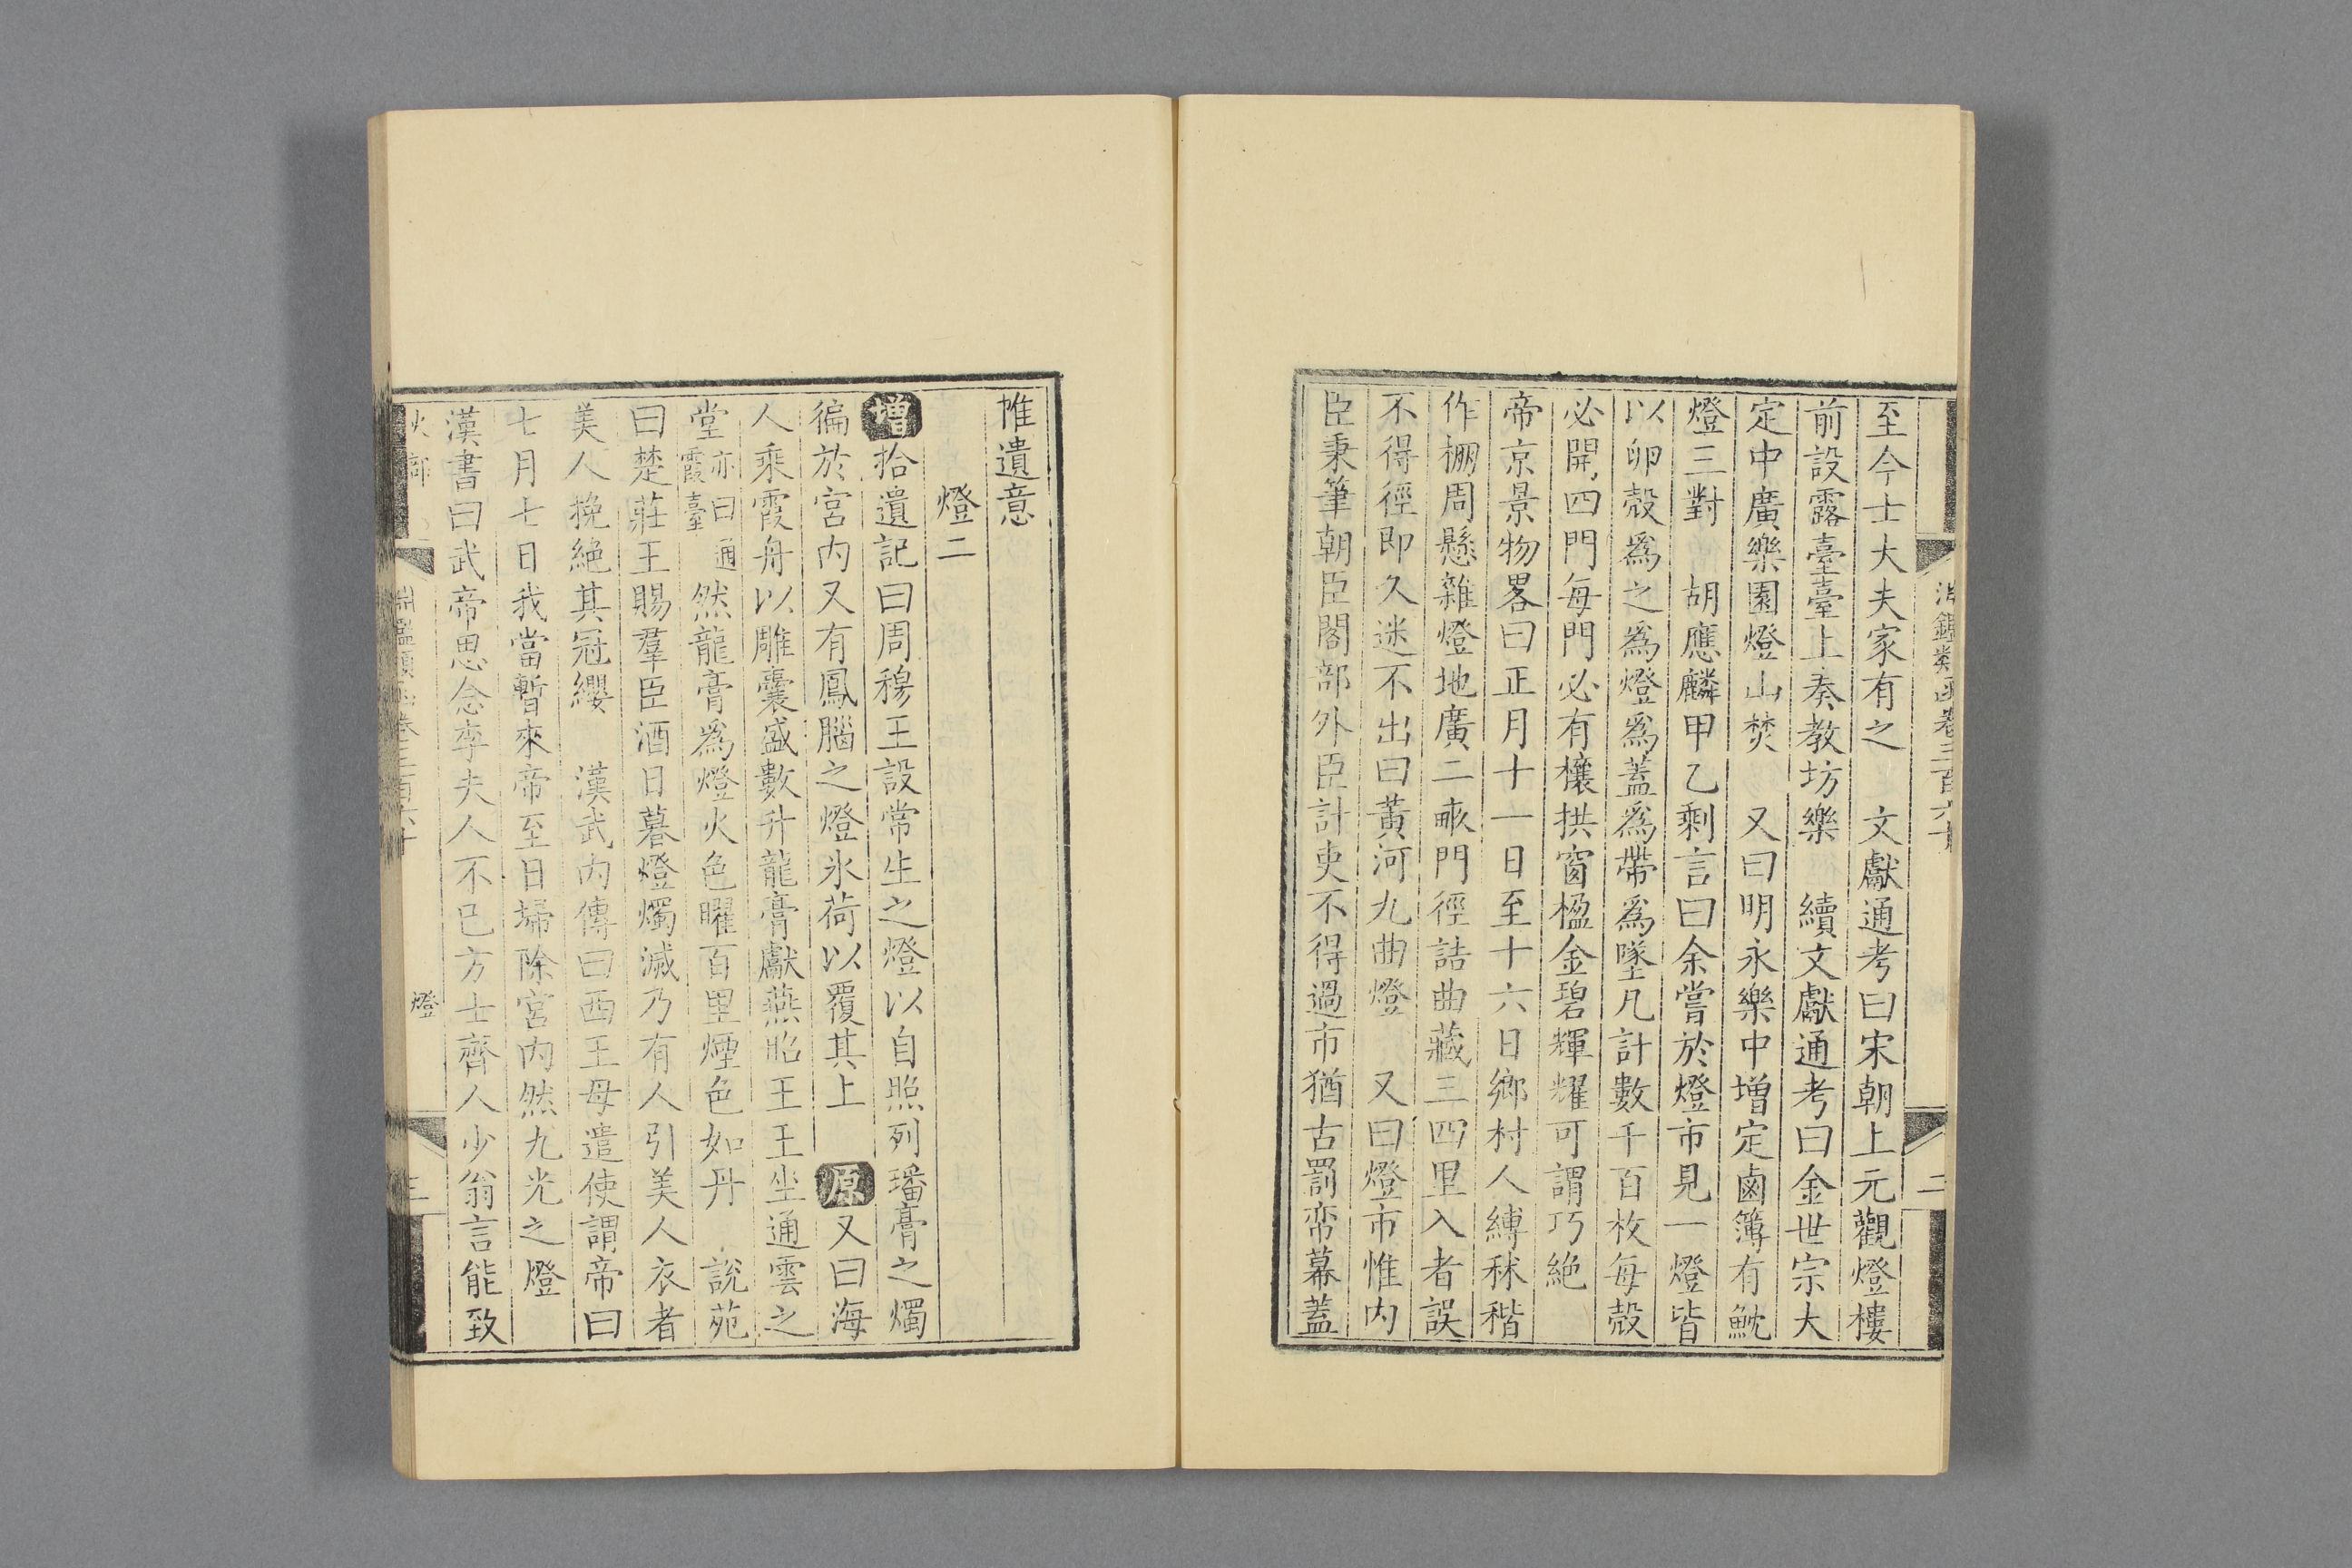 至今士大夫家有之　文獻通考曰宋朝上元觀燈樓
前設露臺臺上奏教坊樂　續文獻通考曰金世宗大
定中廣樂園燈山焚　又曰明永樂中增定鹵簿有魫
燈三對　胡應麟甲乙剩言曰余嘗於燈市見一燈皆
以卵殼爲之爲燈爲蓋爲帶爲墜凡計數千百枚每殼
必開四門每門必有欀拱窗楹金碧輝耀可謂巧絶
帝京景物畧曰正月十一日至十六日鄉村人縛秫稭
作棚周懸雜燈地廣二畞門徑詰曲藏三四里入者誤
不得徑即久迷不出曰黃河九曲燈　又曰燈市惟内
臣秉筆朝臣閣部外臣計吏不得過市猶古罰帟幕蓋
帷遺意
燈二
增拾遺記曰周穆王設常生之燈以自照列璠膏之燭
徧於宮内又有鳳腦之燈氷荷以覆其上　原又曰海
人乘霞舟以雕囊盛數升龍膏獻燕昭王王坐通雲之
堂亦曰通霞臺然龍膏爲燈火色曜百里煙色如丹　説苑
曰楚莊王賜羣臣酒日暮燈燭滅乃有人引美人衣者
美人挽絶其冠纓　漢武内傳曰西王母遣使謂帝曰
七月七日我當暫來帝至日埽除宮内然九光之燈
漢書曰武帝思念李夫人不已方士齊人少翁言能致
火部　淵鑑類函卷三百六十　燈　三